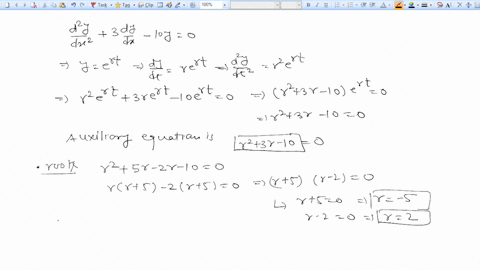 d²y/dx² + 3 dy/dx - 10y = 0
⇒ y = e^rt ⇒ dy/dt = re^rt ⇒ d²y/dt² = r²e^rt
⇒ r²e^rt + 3re^rt - 10e^rt = 0 ⇒ (r² + 3r - 10) e^rt = 0
⇒ r² + 3r - 10 = 0
Auxiliary equation is r² + 3r - 10 = 0
• roots r² + 5r - 2r - 10 = 0
r(r+5) - 2(r+5) = 0 ⇒ (r+5) (r-2) = 0
↳ r+5 = 0 ⇒ r = -5
r-2 = 0 ⇒ r = 2